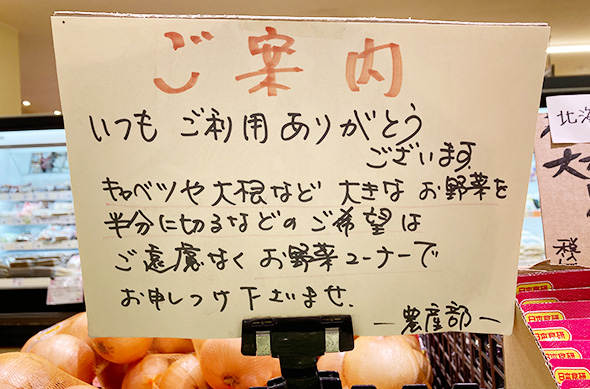 ご案内
いつも ご利用 ありがとう
ございます。
キャベツや大根など 大きな お野菜を
半分に切るなどの ご希望は
ご遠慮なく お野菜コーナーで
お申しつけ下さいませ.
ー農産部ー
北海
大
日本食研
日本食研
日本食研
日本食研